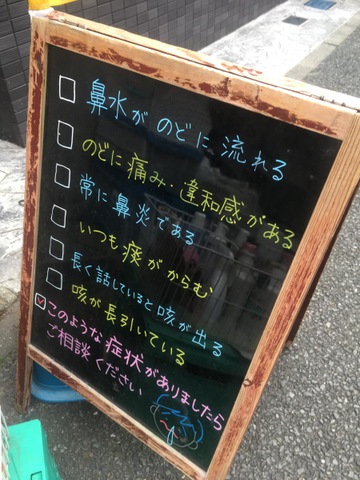 □ 鼻水が のどに 流れる
□ のどに痛み・違和感がある
□ 常に鼻炎である
□ いつも痰がからむ
□ 長く話していると咳が出る
□ 咳が長引いている
☑ このような症状がありましたら
ご相談ください